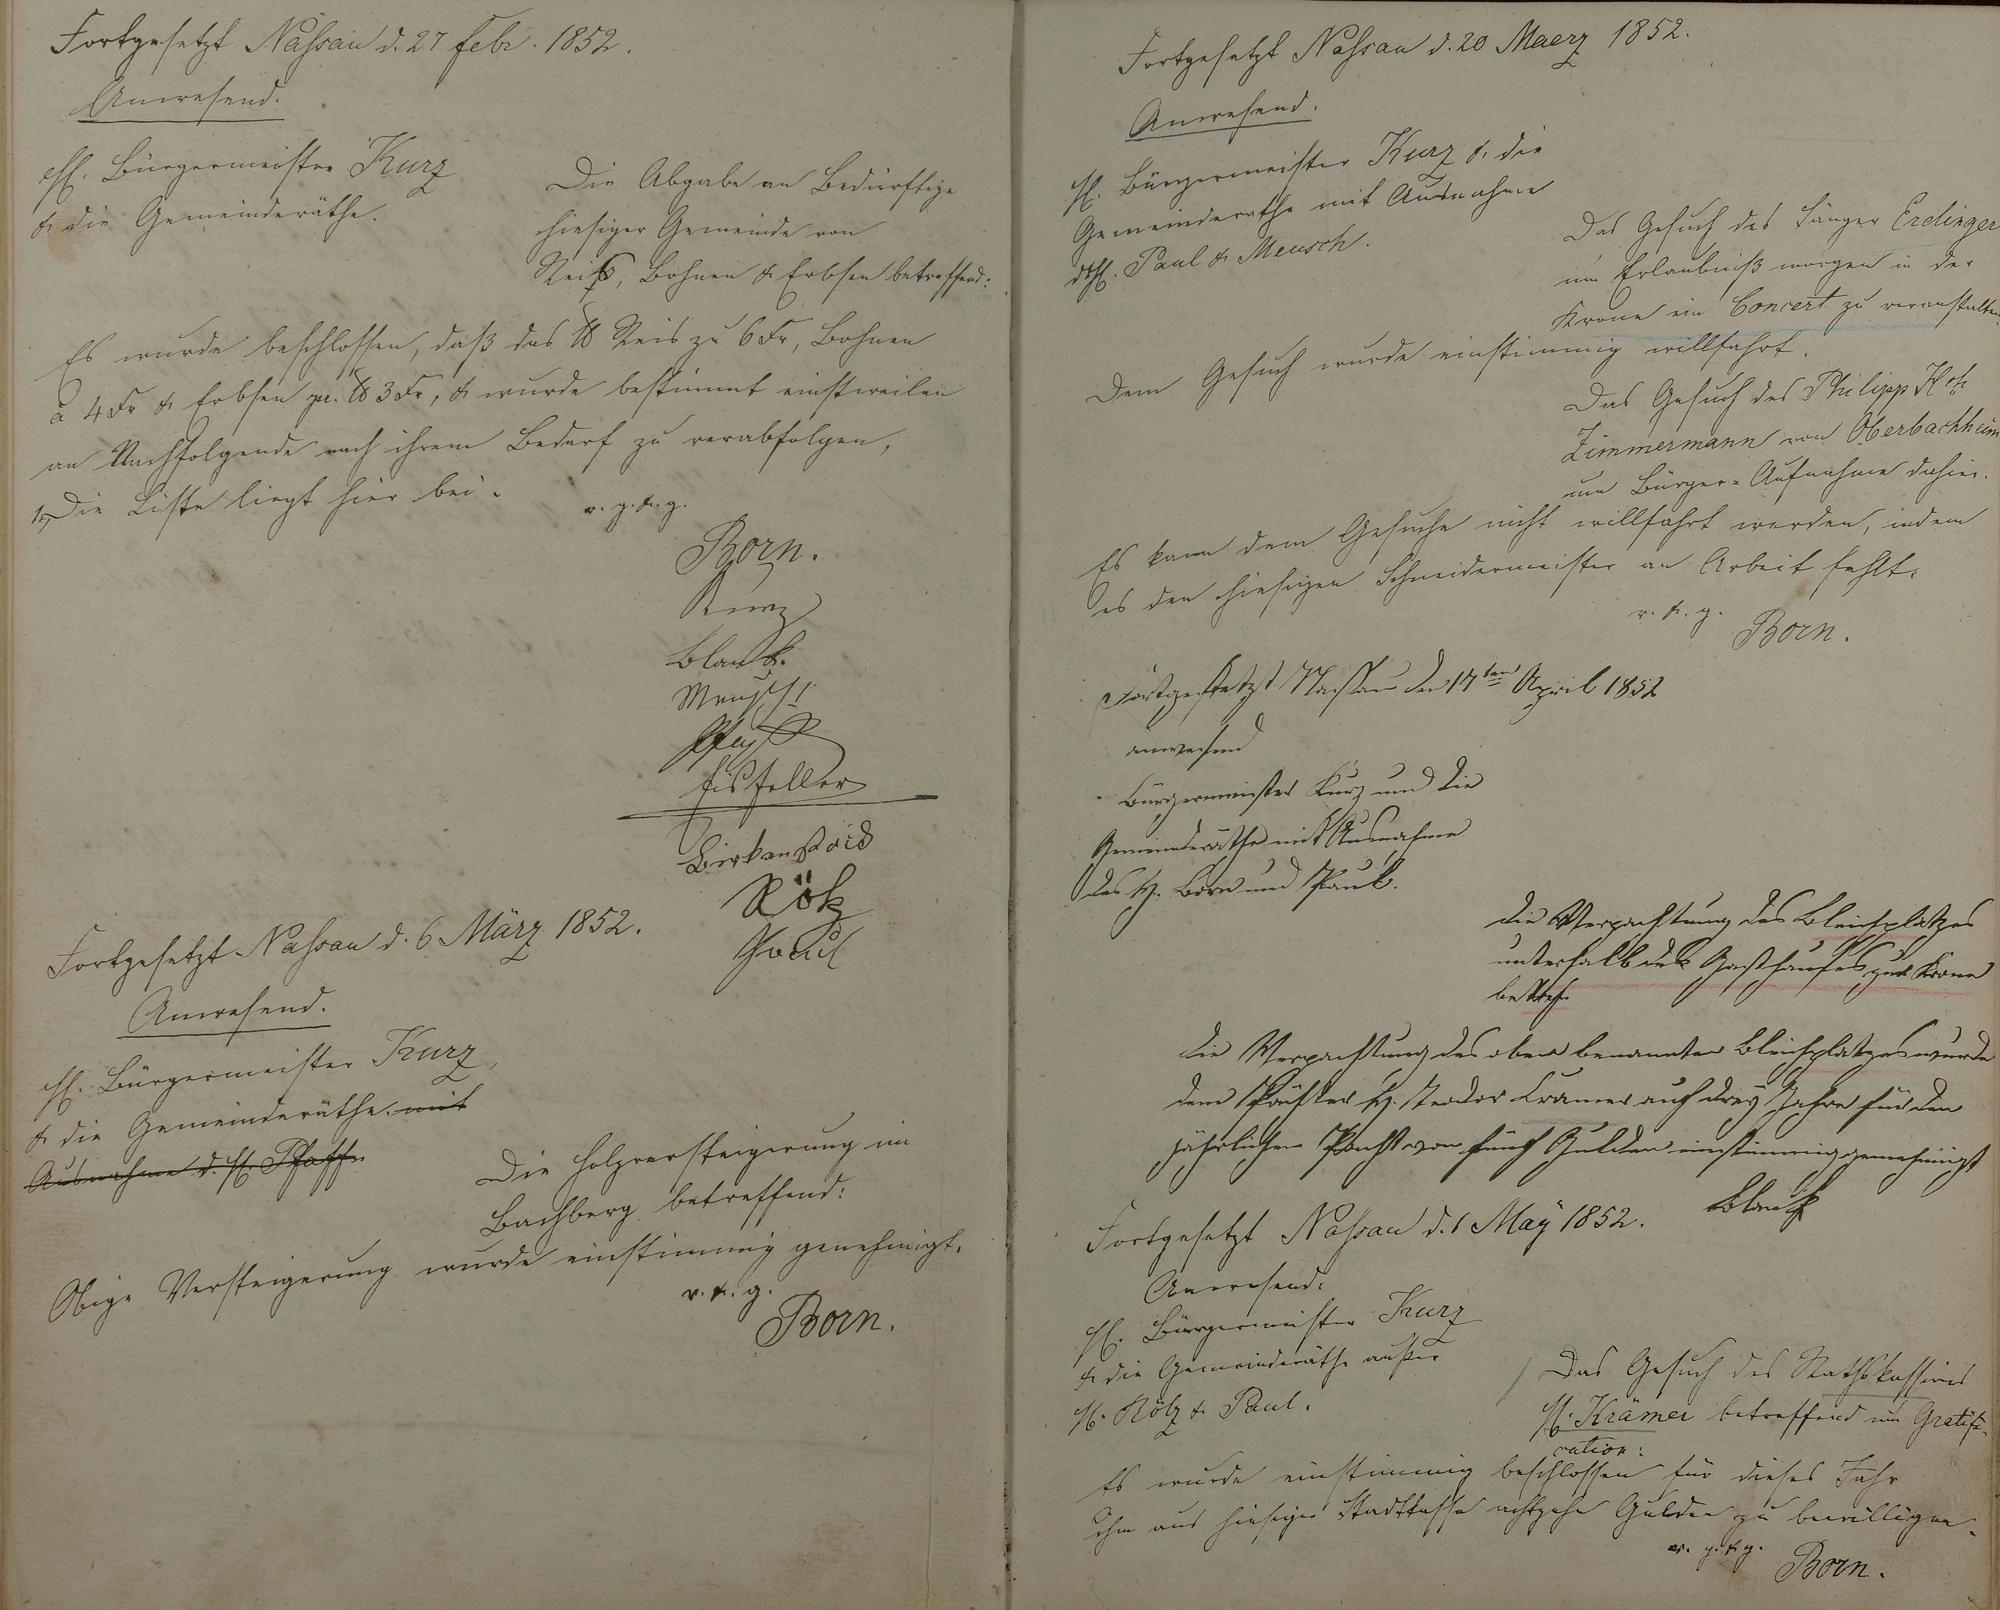 Fortgesetzt Nassau d. 27 Febr. 1852.
Anwesend.
H. Bürgermeister Kurz
& die Gemeinderäthe.
Die Abgabe an Bedürftige
hiesiger Gemeinde von
Reiß, Bohnen & Erbsen betreffend:
Es wurde beschlossen, daß das ℔ Reis zu 6 Kr, Bohnen
a 4 Kr & Erbsen pr. ℔ 3 Kr, & wurde bestimmt einstweilen
an Nachfolgende nach ihrem Bedarf zu verabfolgen,
1, Die Liste liegt hier bei.
v. g. & g.
Born.
Kurz
Blank.
Meusch
Eisfeller
Birkenstock
Rötz
Paul
Fortgesetzt Nassau d. 6 März 1852.
Anwesend.
H. Bürgermeister Kurz
& die Gemeinderäthe. mit
Ausnahme d. H. Pfaff.
Die Holzversteigerung im
Bachberg betreffend:
Obige Versteigerung wurde einstimmig genehmigt.
v. & g.
Born.
Fortgesetzt Nassau d. 20 Maerz 1852.
Anwesend.
H. Bürgermeister Kurz & die
Gemeinderathe mit Ausnahme
d. H. Paul & Meusch.
Das Gesuch des Sänger Erdinger
um Erlaubniß morgen in der
Krone ein Concert zu veranstalten.
Dem Gesuch wurde einstimmig willfahrt.
Das Gesuch des Philipp
Zimmermann von Oberbachheim
um Bürger-Aufnahme dahier.
Es kann dem Gesuche nicht willfahrt werden, indem
es den hiesigen Schneidermeister an Arbeit fehlt.
v. & g.
Born.
Fortgesetzt Nassau den 17ten April 1852
anwesend
Bürgermeister Kurz und die
Gemeinderäthe mit Ausnahme
des H. Born und Paul.
Die Verpachtung des Bleichplatzes
unterhalb des Gasthauses zur Krone
betref.
Die Verpachtung des oben benannten Bleichplatzes wurde
dem Pächter H. Teodor Kramer auf drey Jahre für den
jährlichen Pacht von fünf Gulden einstimmig genehmigt
Blank
Fortgesetzt Nassau d. 1 May 1852.
Anwesend:
H. Bürgermeister Kurz
& die Gemeinderäthe außer
H. Rötz & Paul.
Das Gesuch des
H. Krämer betreffend um Gratifi-
cation:
Es wurde einstimmig beschlossen für dieses Jahr
ihm aus hiesiger Stadtkasse achtzehn Gulden zu bewilligen.
v. g. & g.
Born.